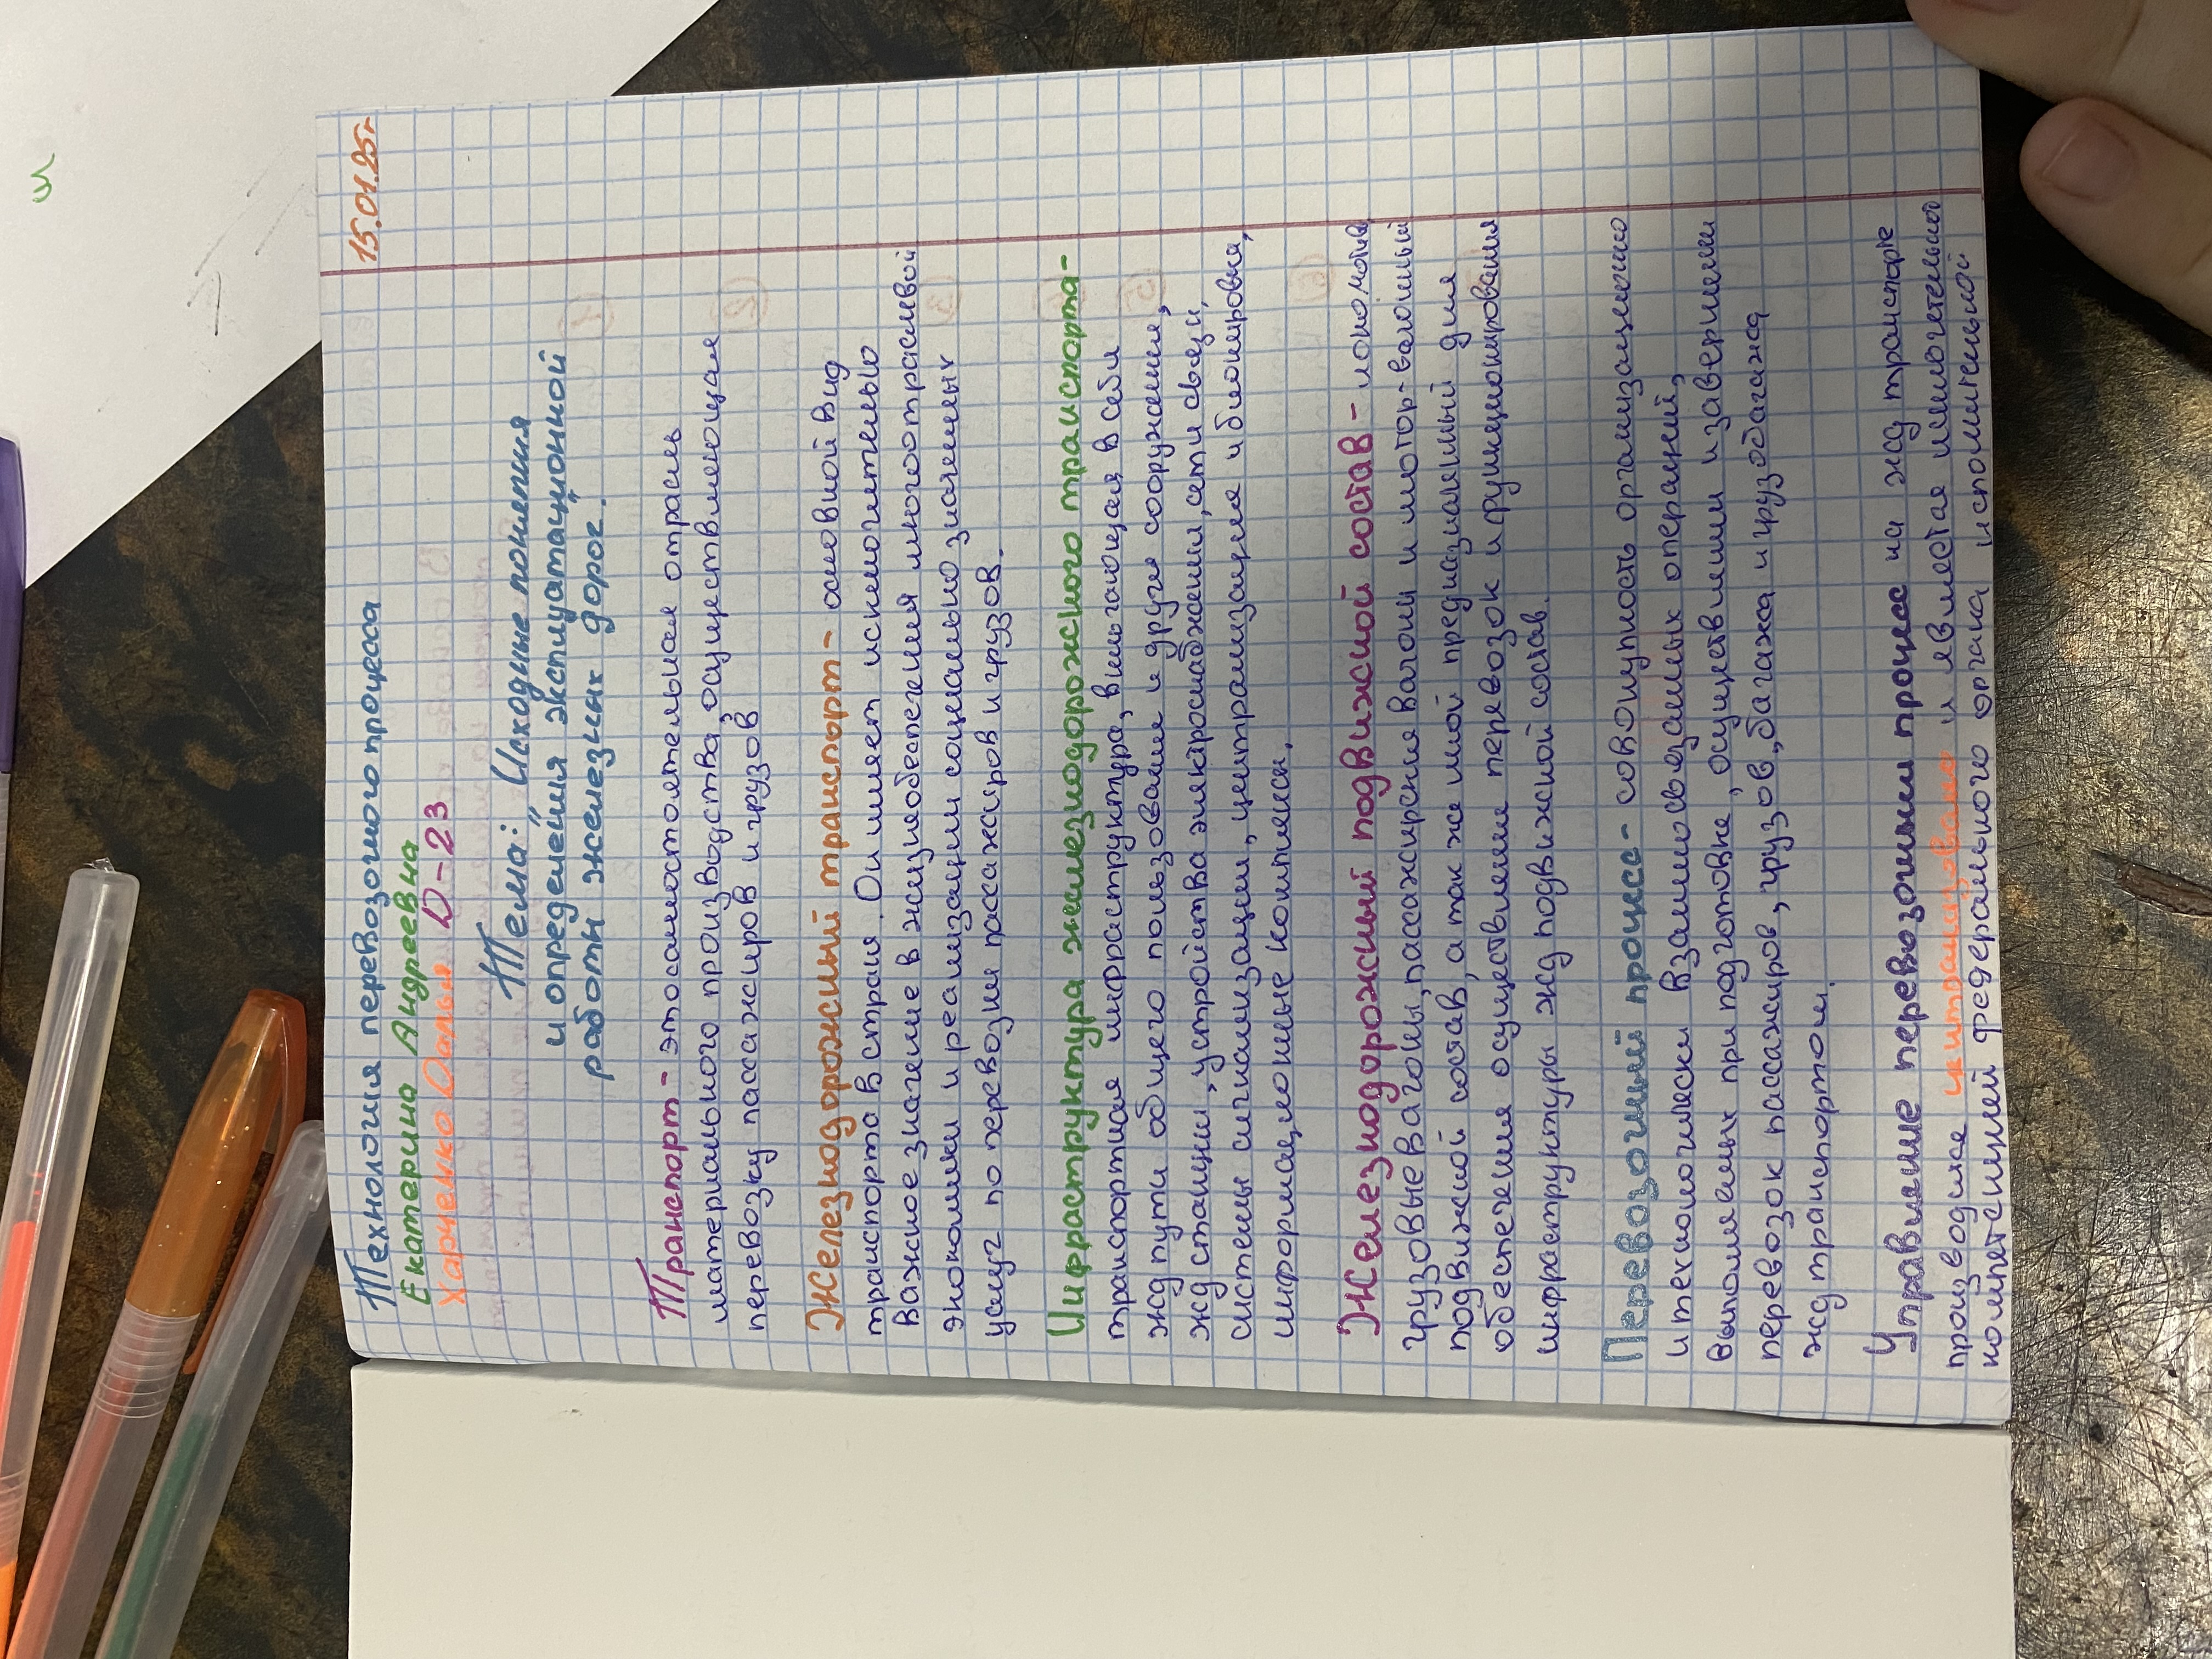 15.01.25г
Технология перевозочного процесса
Екатерина Андреевна
Харченко Дарья D-23
Тема: „Исходные понятия
и определения эксплуатационной
работы железных дорог".
Транспорт- это самостоятельная отрасль
материального производства, осуществляющая
перевозку пассажиров и грузов
Железнодорожный транспорт- основной вид
транспорта в стране. Он имеет исключительно
важное значение в жизнеобеспечения многоотраслевой
экономики и реализации социально значемых
услуг по перевозки пассажиров и грузов.
Инфраструктура железнодорожного транспорта-
транспортная инфраструктура, включающая в себя
жд пути общего пользование и другие сооружения,
жд станции, устройства электроснабжении, сети связи,
системы сигнализации, централизации и блокировки,
информационные комплексы.
Железнодорожный подвижной состав- локомотивы,
грузовые вагоны, пассажирские вагоны и мотор-вагонный
подвижной состав, а так же иной предназначенный для
обеспечения осуществление перевозок и функционирования
инфраструктуры жд подвижной состав.
Перевозочный процесс- совокупность организационно
и технологически взаимосвязанных операций,
выполняемых при подготовке, осуществлении и завершении
перевозок пассажиров, грузов, багажа и грузобагажа
жд транспортом.
Управление перевозочным процесс на жд транспорте
производися централизовано и является исключительной
компетенцией федерального органа исполнительной